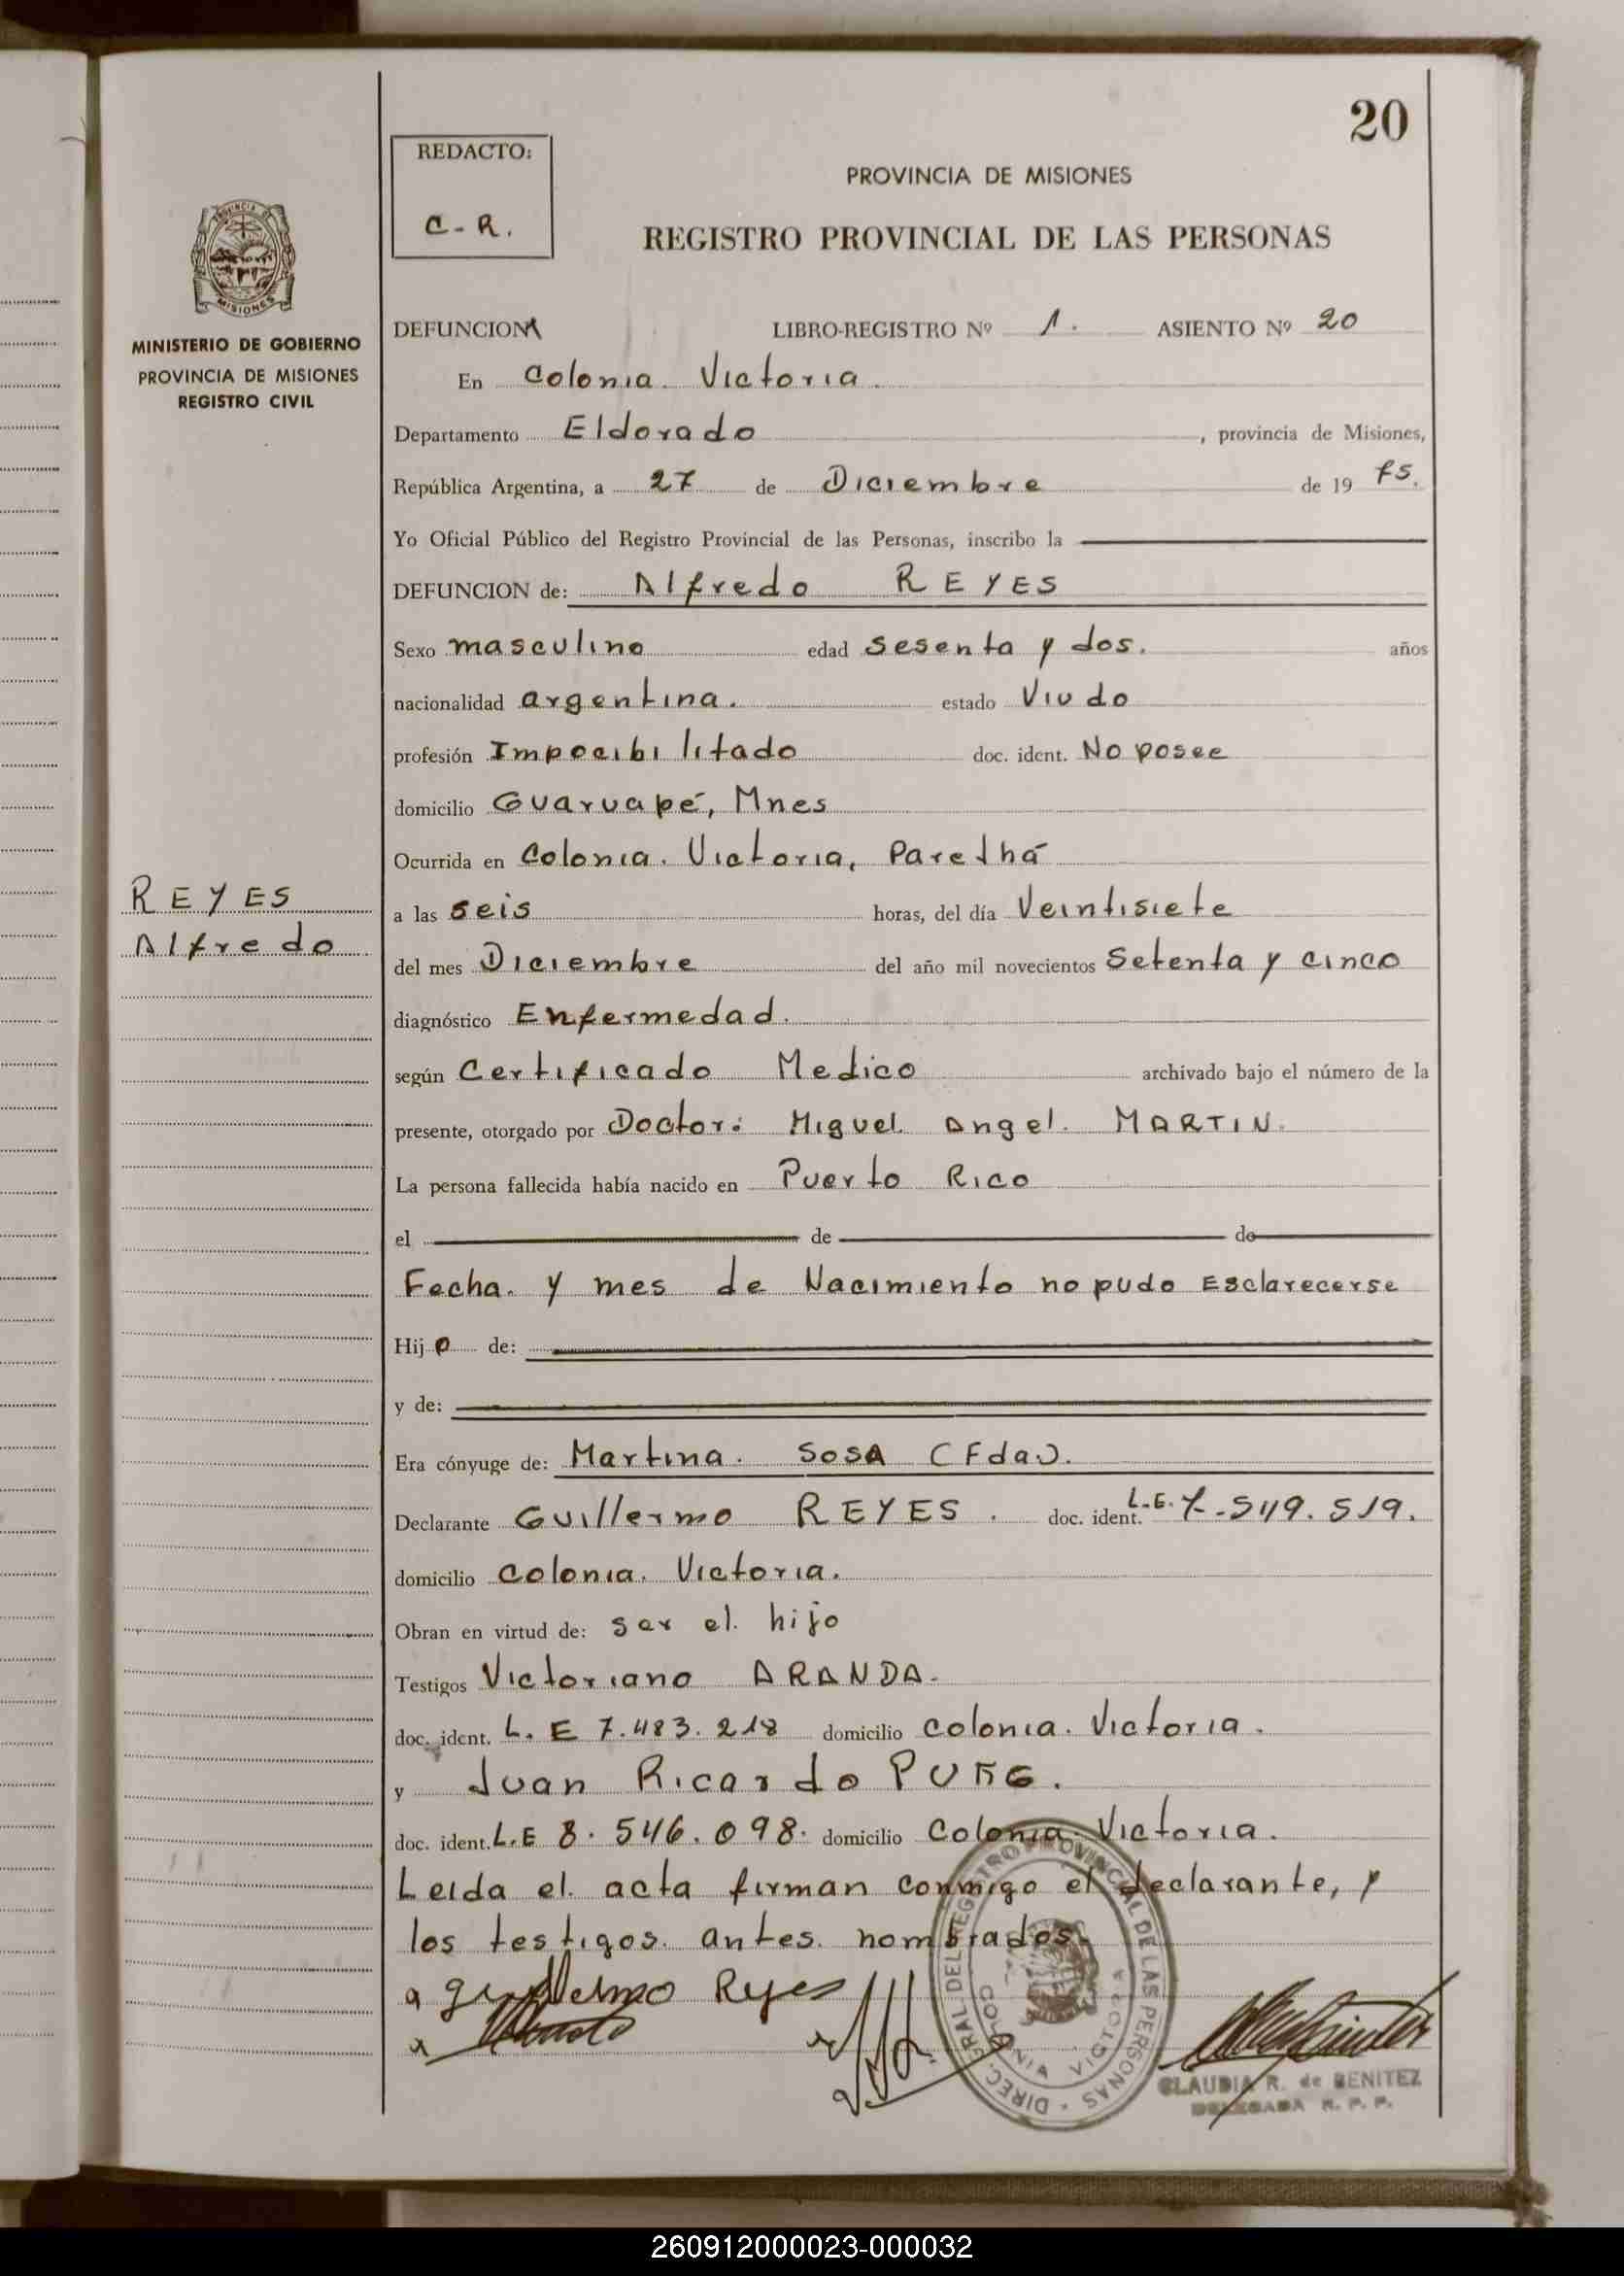 20
REDACTO:
C-R.
PROVINCIA DE MISIONES
REGISTRO PROVINCIAL DE LAS PERSONAS
MISIONES
MINISTERIO DE GOBIERNO
PROVINCIA DE MISIONES
REGISTRO CIVIL
DEFUNCION LIBRO-REGISTRO Nº 1. ASIENTO Nº 20
En Colonia. Victoria.
Departamento Eldorado, provincia de Misiones,
República Argentina, a 27 de Diciembre de 19 75.
Yo Oficial Público del Registro Provincial de las Personas, inscribo la
DEFUNCION de: Alfredo REYES
Sexo masculino edad sesenta y dos. años
nacionalidad argentina. estado Viudo
profesión Impocibilitado doc. ident. No posee
domicilio Guaruapé, Mnes
Ocurrida en Colonia. Victoria,
REYES
Alfredo
a las seis horas, del día Veintisiete
del mes Diciembre del año mil novecientos Setenta y cinco
diagnóstico Enfermedad.
según Certificado Medico archivado bajo el número de la
presente, otorgado por Doctor: Miguel Angel. MARTIN.
La persona fallecida había nacido en Puerto Rico
el de de
Fecha. y mes de Nacimiento no pudo Esclarecerse
Hijo de:
y de:
Era cónyuge de: Martina. SOSA (Fda).
Declarante Guillermo REYES. doc. ident. L.E. 7.549.519.
domicilio Colonia. Victoria.
Obran en virtud de: ser el. hijo
Testigos Victoriano ARANDA.
doc. ident. L.E 7.483.218 domicilio Colonia. Victoria.
y Juan Ricardo
doc. ident. L.E 8.546.098. domicilio Colonia. Victoria.
Leida el. acta firman conmigo el declarante, y
los testigos. antes. nombrados.
guillermo Reyes
DIREC. GRAL. DEL REGISTRO PROVINCIAL DE LAS PERSONAS
COLONIA VICTORIA
CLAUDIA R. de BENITEZ
DELEGADA R. P. P.
260912000023-000032